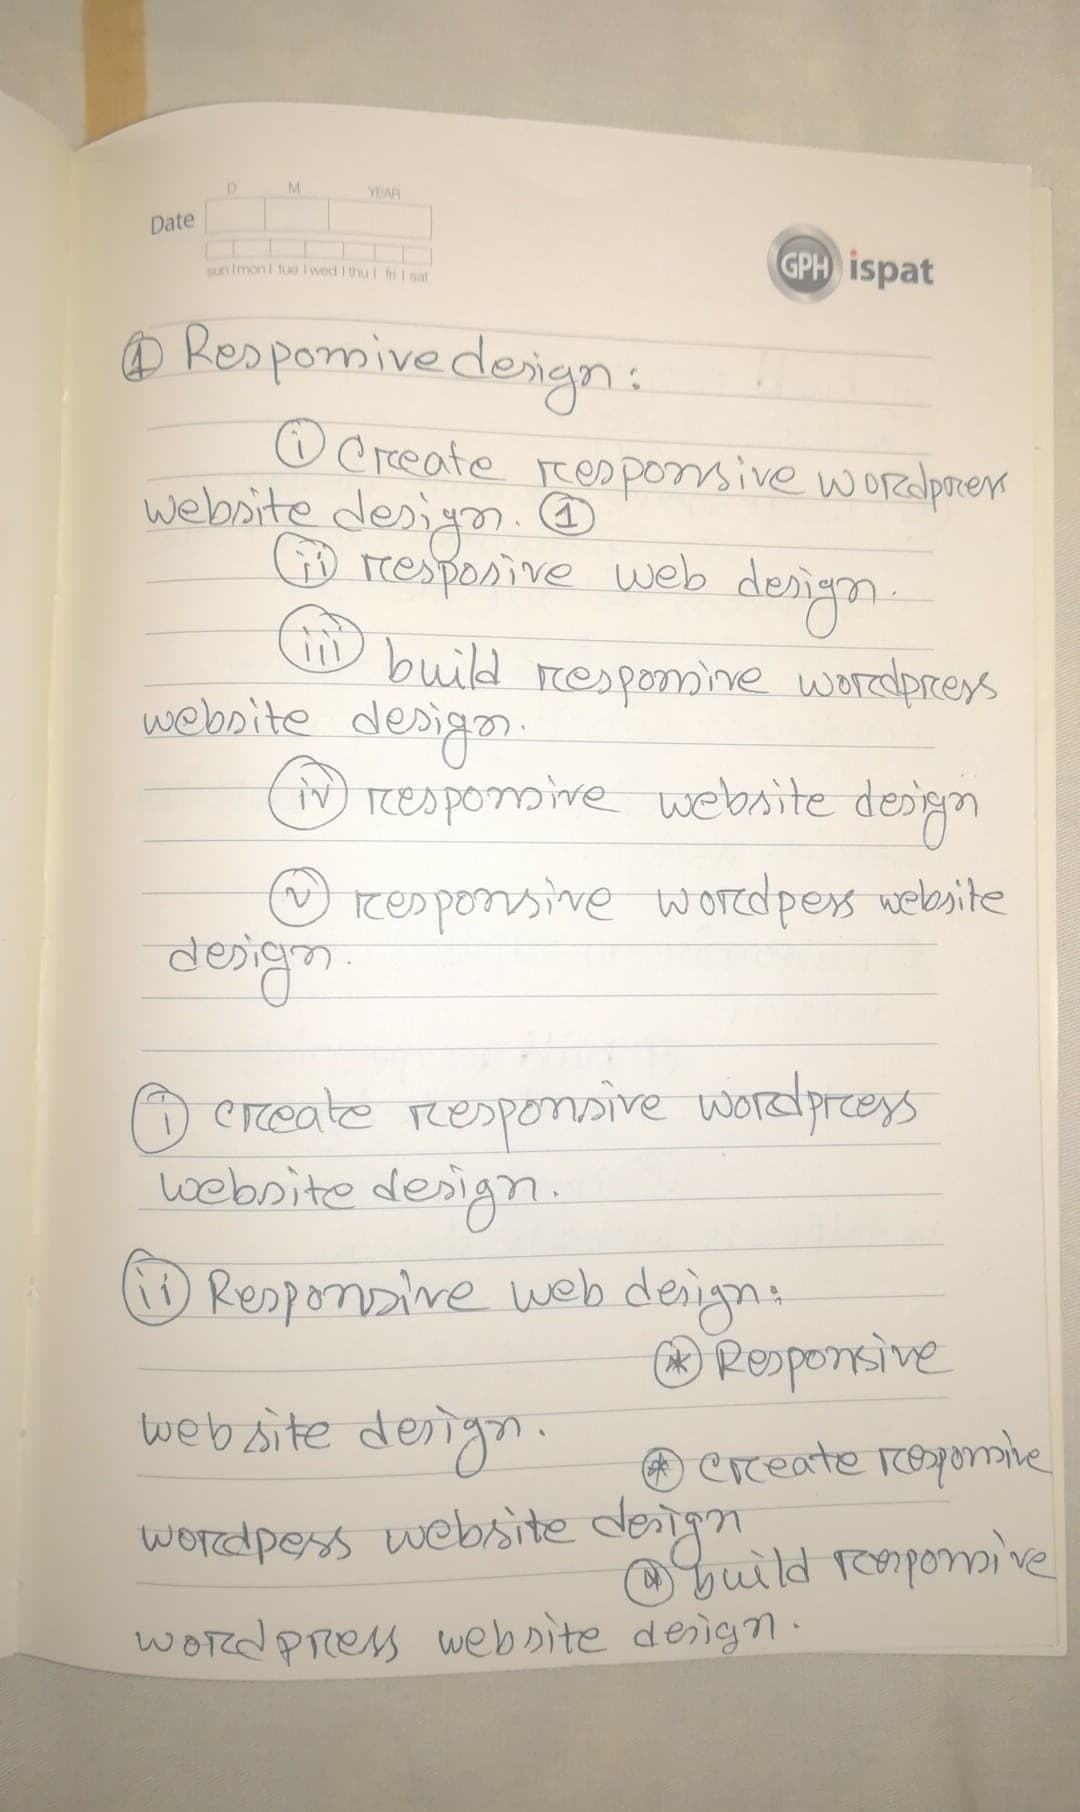 D M YEAR
Date
sun mon tue wed thu fri sat
GPH ispat
① Responsive design:
ⓘ Create responsive wordpress
website design. ①
ⓘⓘ resposive web design.
iii build responsive wordpress
website design.
iv responsive website design
v responsive wordpess website
design.
i create responsive wordpress
website design.
ii Responsive web design:
* Responsive
website design.
* create responsive
wordpess website design
* build responsive
wordpress website design.